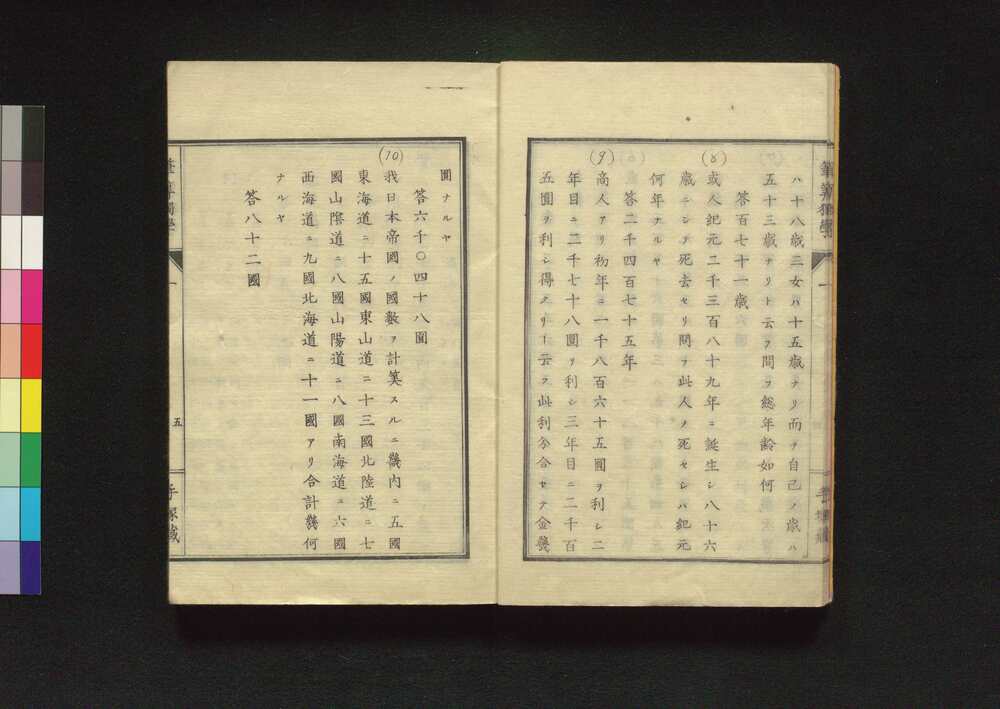 筆算獨學
一
ハ十八歳三女ハ十五歳ナリ而テ自己ノ歳ハ
五十三歳ナリト云フ問フ總年齡如何
答百七十一歳
(8)
或人紀元二千三百八十九年ニ誕生シ八十六
歳ニシテ死去セリ問フ此人ノ死セシハ紀元
何年ナルヤ
答二千四百七十五年
(9)
商人アリ初年ニ一千八百六十五圓ヲ利シ二
年目ニ二千七十八圓ヲ利シ三年目ニ二千百
五圓ヲ利シ得タリト云フ此利分合セテ金幾
圓ナルヤ
答六千〇四十八圓
(10)
我日本帝國ノ國數ヲ計筭スルニ畿内ニ五國
東海道ニ十五國東山道ニ十三國北陸道ニ七
國山陰道ニ八國山陽道ニ八國南海道ニ六國
西海道ニ九國北海道ニ十一國アリ合計幾何
ナルヤ
答八十二國
一
五